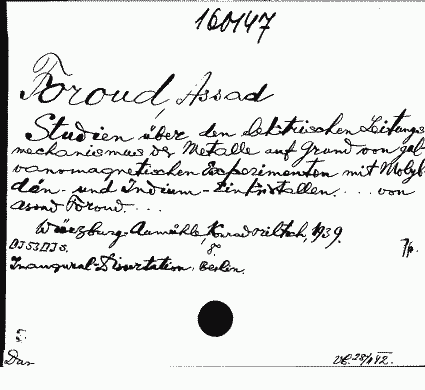 160147
Foroud, Assad
Studien über den elektrischen Leitungs-
mechanismus der Metalle auf Grund von gal-
vanomagnetischen Experimenten mit Molyb-
dän- und Indium-Einkristallen. ... von
Assad Foroud. ...
Würzburg-Aumühle, Konrad Triltsch, 1939.
8.
Inaugural-Dissertation, Berlin.